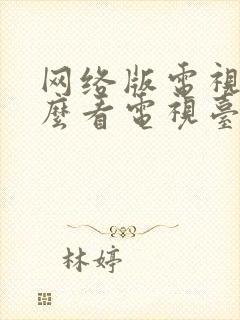 网络版电視
麼看電視臺
林婷